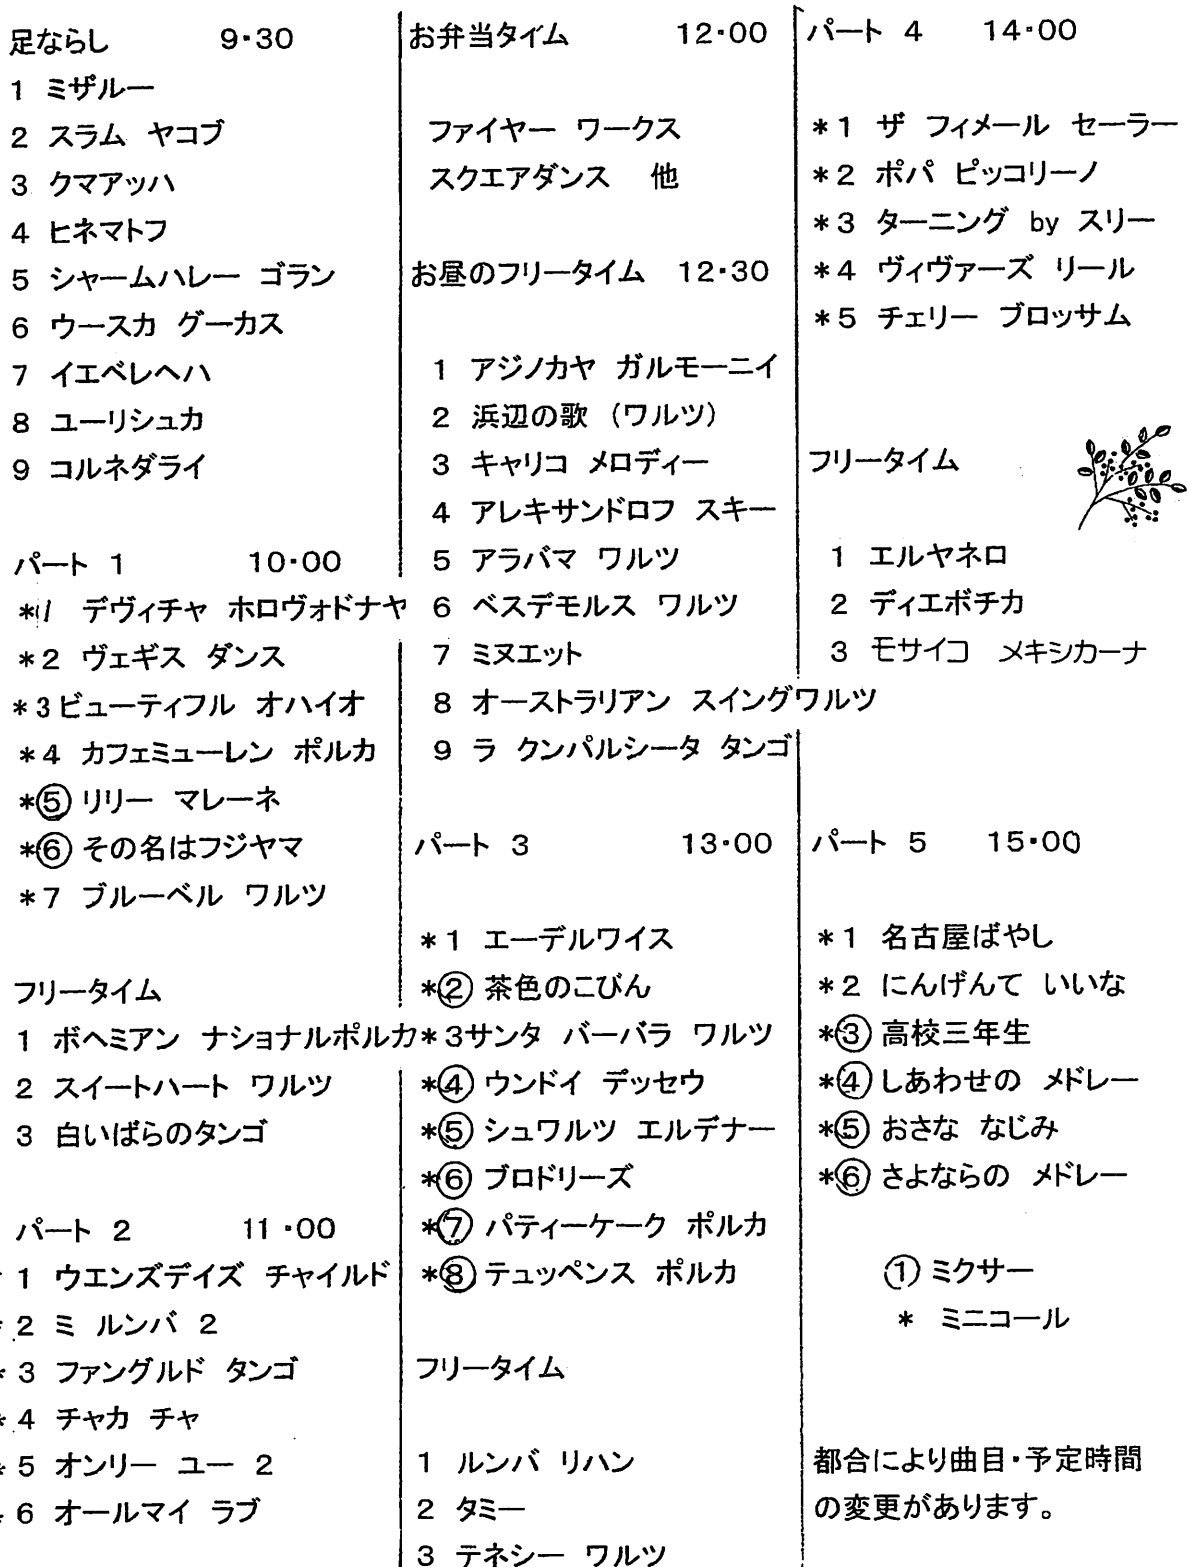 足ならし 9・30
1 ミザルー
2 スラム ヤコブ
3 クマアッハ
4 ヒネマトフ
5 シャームハレー ゴラン
6 ウースカ グーカス
7 イエベレヘハ
8 ユーリシュカ
9 コルネダライ
パート 1 10・00
*1 デヴィチャ ホロヴォドナヤ
*2 ヴェギス ダンス
*3 ビューティフル オハイオ
*4 カフェミューレン ポルカ
*⑤ リリー マレーネ
*⑥ その名はフジヤマ
*7 ブルーベル ワルツ
フリータイム
1 ボヘミアン ナショナルポルカ
2 スイートハート ワルツ
3 白いばらのタンゴ
パート 2 11・00
*1 ウエンズデイズ チャイルド
*2 ミ ルンバ 2
*3 ファングルド タンゴ
*4 チャカ チャ
*5 オンリー ユー 2
*6 オールマイ ラブ
お弁当タイム 12・00
ファイヤー ワークス
スクエアダンス 他
お昼のフリータイム 12・30
1 アジノカヤ ガルモーニイ
2 浜辺の歌 (ワルツ)
3 キャリコ メロディー
4 アレキサンドロフ スキー
5 アラバマ ワルツ
6 ベスデモルス ワルツ
7 ミヌエット
8 オーストラリアン スイングワルツ
9 ラ クンパルシータ タンゴ
パート 3 13・00
*1 エーデルワイス
*② 茶色のこびん
*3サンタ バーバラ ワルツ
*④ ウンドイ デッセウ
*⑤ シュワルツ エルデナー
*⑥ ブロドリーズ
*⑦ パティーケーク ポルカ
*⑧ テュッペンス ポルカ
フリータイム
1 ルンバ リハン
2 タミー
3 テネシー ワルツ
パート 4 14・00
*1 ザ フィメール セーラー
*2 ポパ ピッコリーノ
*3 ターニング by スリー
*4 ヴィヴァーズ リール
*5 チェリー ブロッサム
フリータイム
1 エルヤネロ
2 ディエボチカ
3 モサイコ メキシカーナ
パート 5 15・00
*1 名古屋ばやし
*2 にんげんて いいな
*③ 高校三年生
*④ しあわせの メドレー
*⑤ おさな なじみ
*⑥ さよならの メドレー
① ミクサー
* ミニコール
都合により曲目・予定時間
の変更があります。